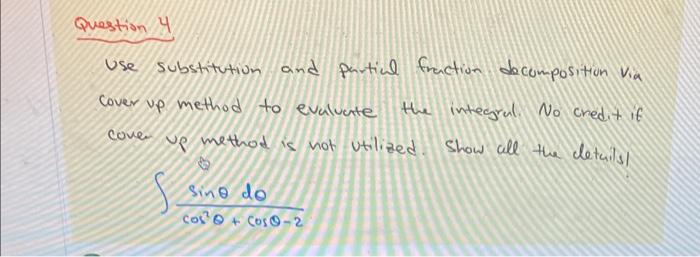 Question 4
Use substitution and partial fraction decomposition via
cover up method to evaluate the integral. No credit if
cover up method is not utilized. Show all the details!
∫ sinθ dθ / cos²θ + cosθ-2